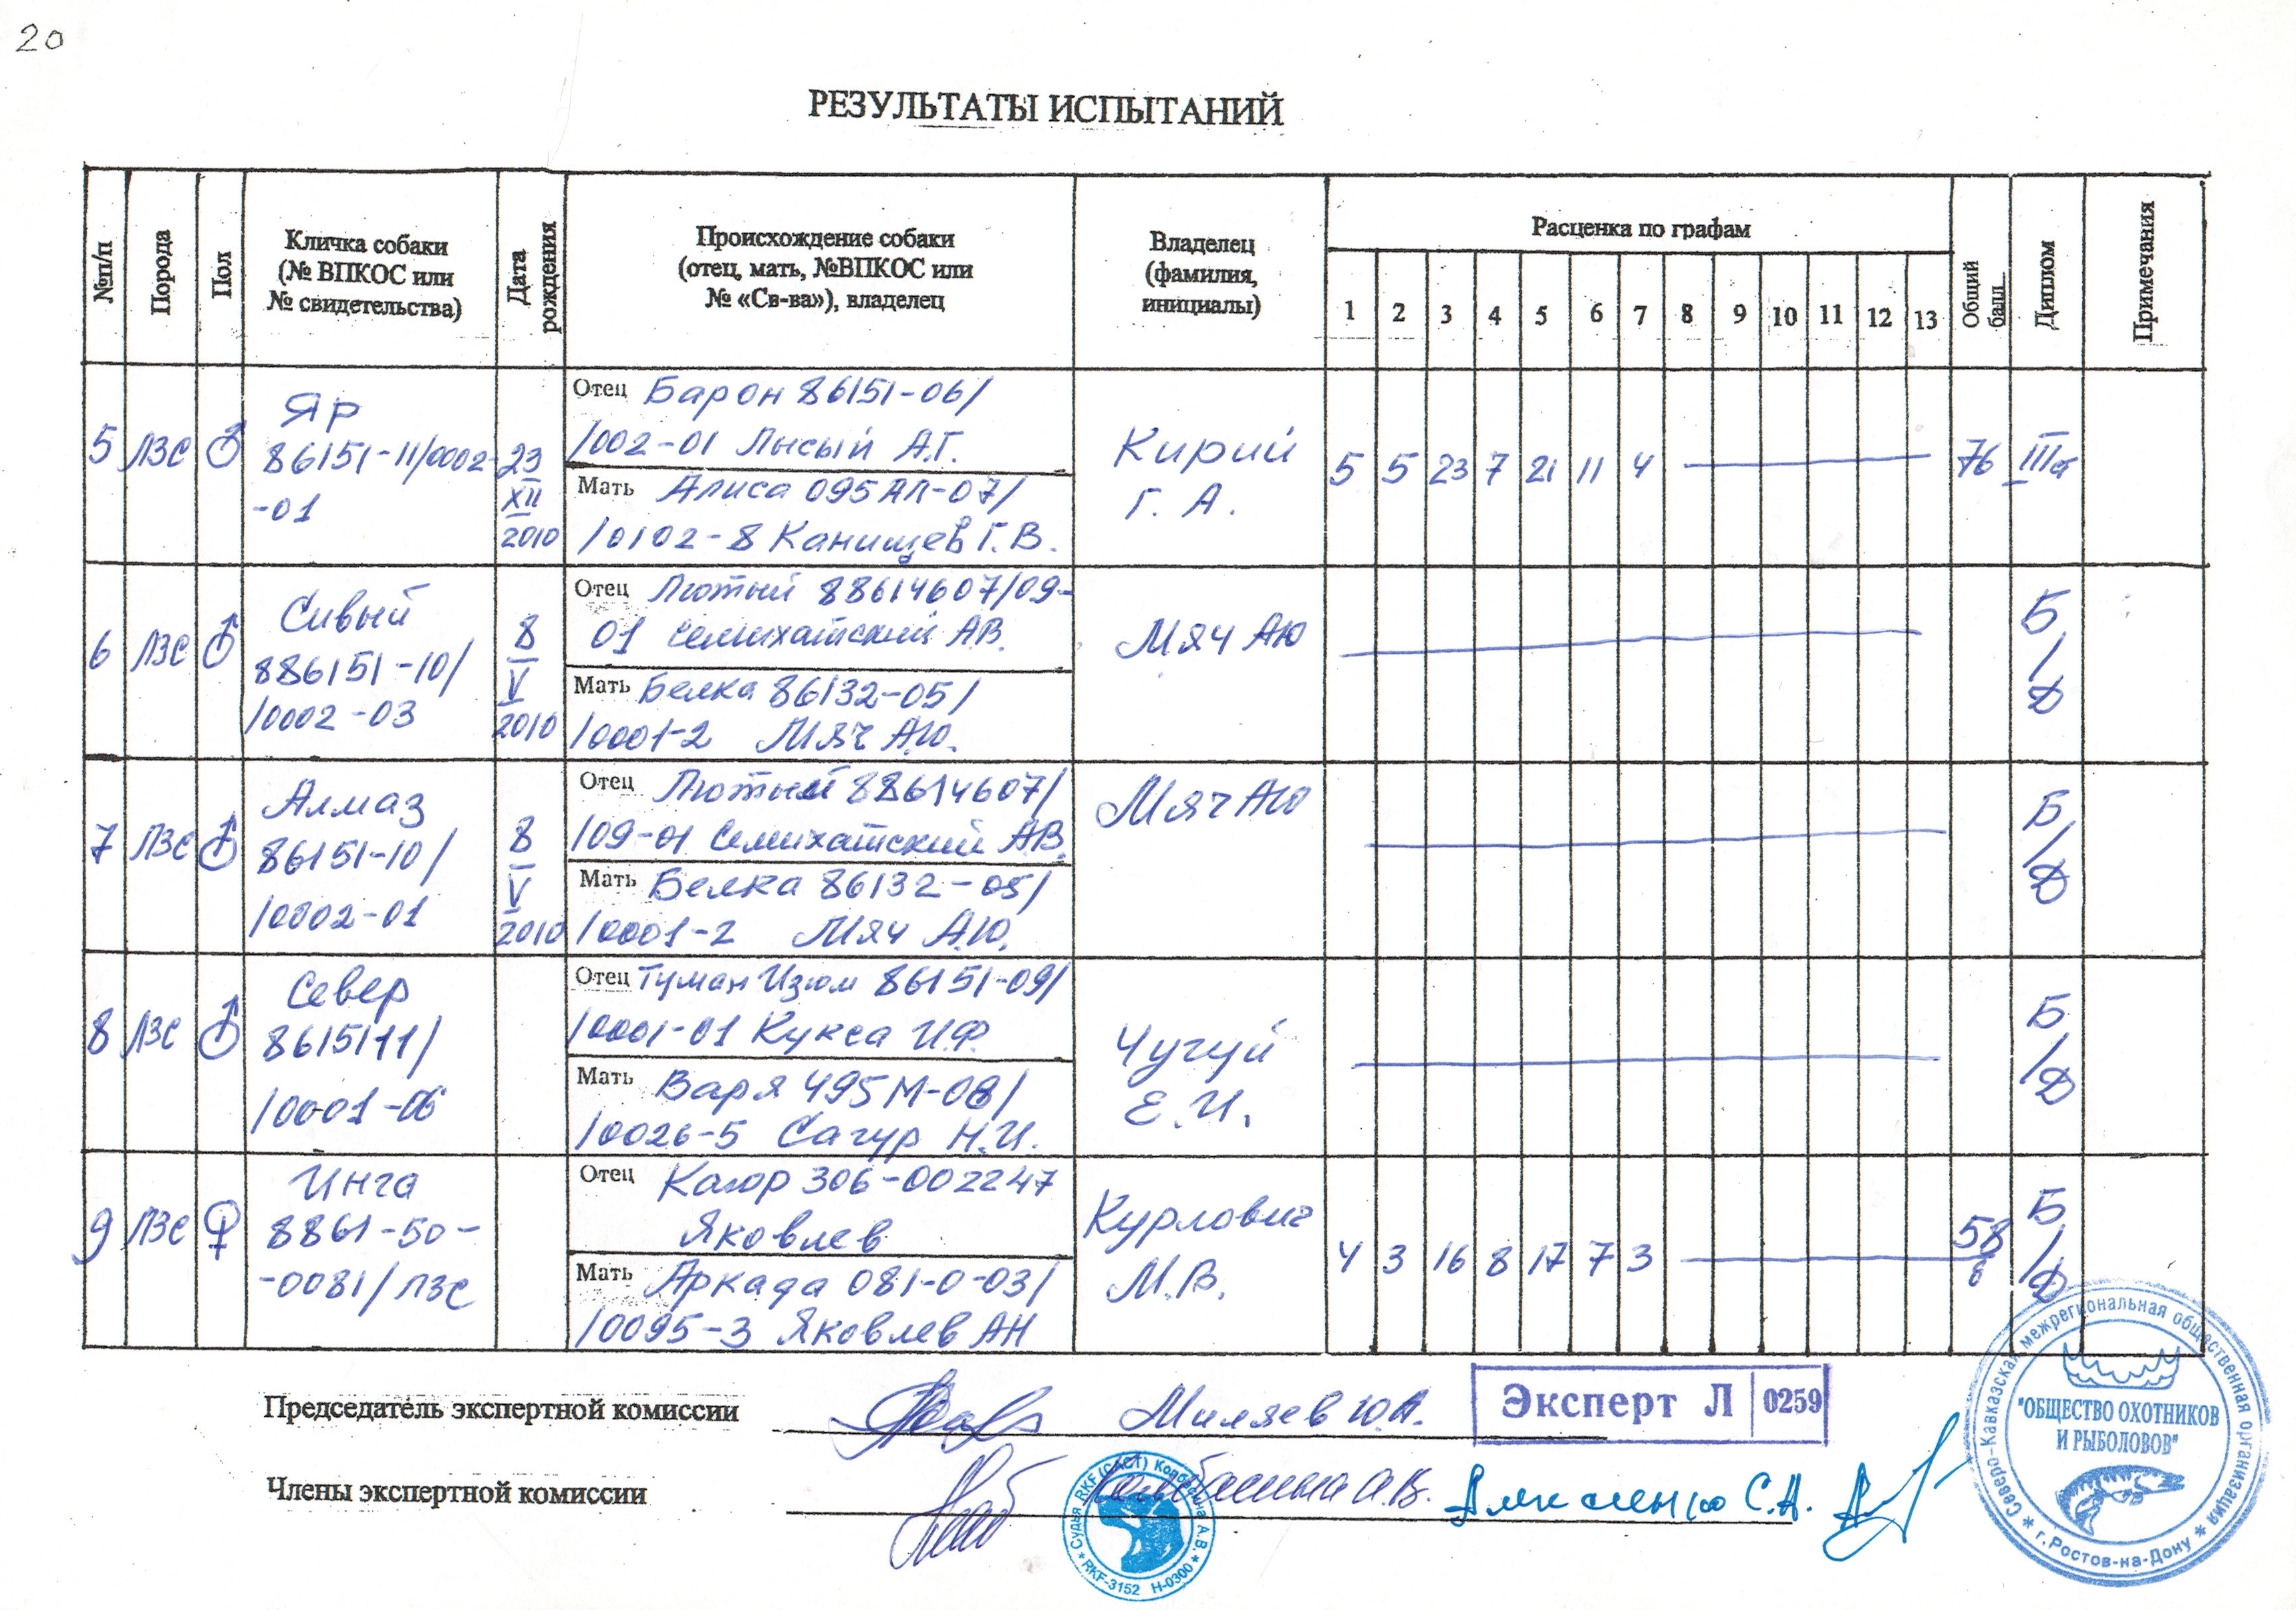 20
РЕЗУЛЬТАТЫ ИСПЫТАНИЙ
№п/п
Порода
Пол
Кличка собаки
(№ ВПКОС или
№ свидетельства)
Дата
рождения
Происхождение собаки
(отец, мать, №ВПКОС или
№ «Св-ва»), владелец
Владелец
(фамилия,
инициалы)
Расценка по графам
1 2 3 4 5 6 7 8 9 10 11 12 13
Общий
балл
Диплом
Примечания
5 ЛЗС ♂
Яр
86151-11/0002-
-01
23
XII
2010
Отец Барон 86151-06/
/002-01 Лысый А.Г.
Мать Алиса 095АЛ-07/
/0102-8 Канищев Г.В.
Кирий
Г. А.
5 5 23 7 21 11 4 76 IIIа
6 ЛЗС ♂
Сивый
886151-10/
/0002-03
8
V
2010
Отец Лютый 88614607/09-
01 Семихатский АВ.
Мать Белка 86132-05/
/0001-2 Мяч А.Ю.
Мяч АЮ
Б/Д
7 ЛЗС ♂
Алмаз
86151-10/
/0002-01
8
V
2010
Отец Лютый 88614607/
/09-01 Семихатский АВ.
Мать Белка 86132-05/
/0001-2 Мяч А.Ю.
Мяч АЮ
Б/Д
8 ЛЗС ♂
Север
8615111/
/0001-06
Отец Туман Изюм 86151-09/
/0001-01 Кукса И.Ф.
Мать Варя 495М-08/
/0026-5 Сагур Н.И.
Чугуй
Е.И.
Б/Д
9 ЛЗС ♀
Инга
8861-50-
-0081/ЛЗС
Отец Кагор 306-002247
Яковлев
Мать Аркада 081-0-03/
/0095-3 Яковлев АН
Курлович
М.В.
4 3 16 8 17 7 3 58 Б/Д
Председатель экспертной комиссии Миляев Ю.А.
Эксперт Л 0259
Члены экспертной комиссии Колбасина А.В. Алексеенко С.А.
Судья RKF (САСТ) Колбасина А.В. * RKF-3152 Н-0300 *
Северо-Кавказская межрегиональная общественная организация * г. Ростов-на-Дону *
"ОБЩЕСТВО ОХОТНИКОВ
И РЫБОЛОВОВ"